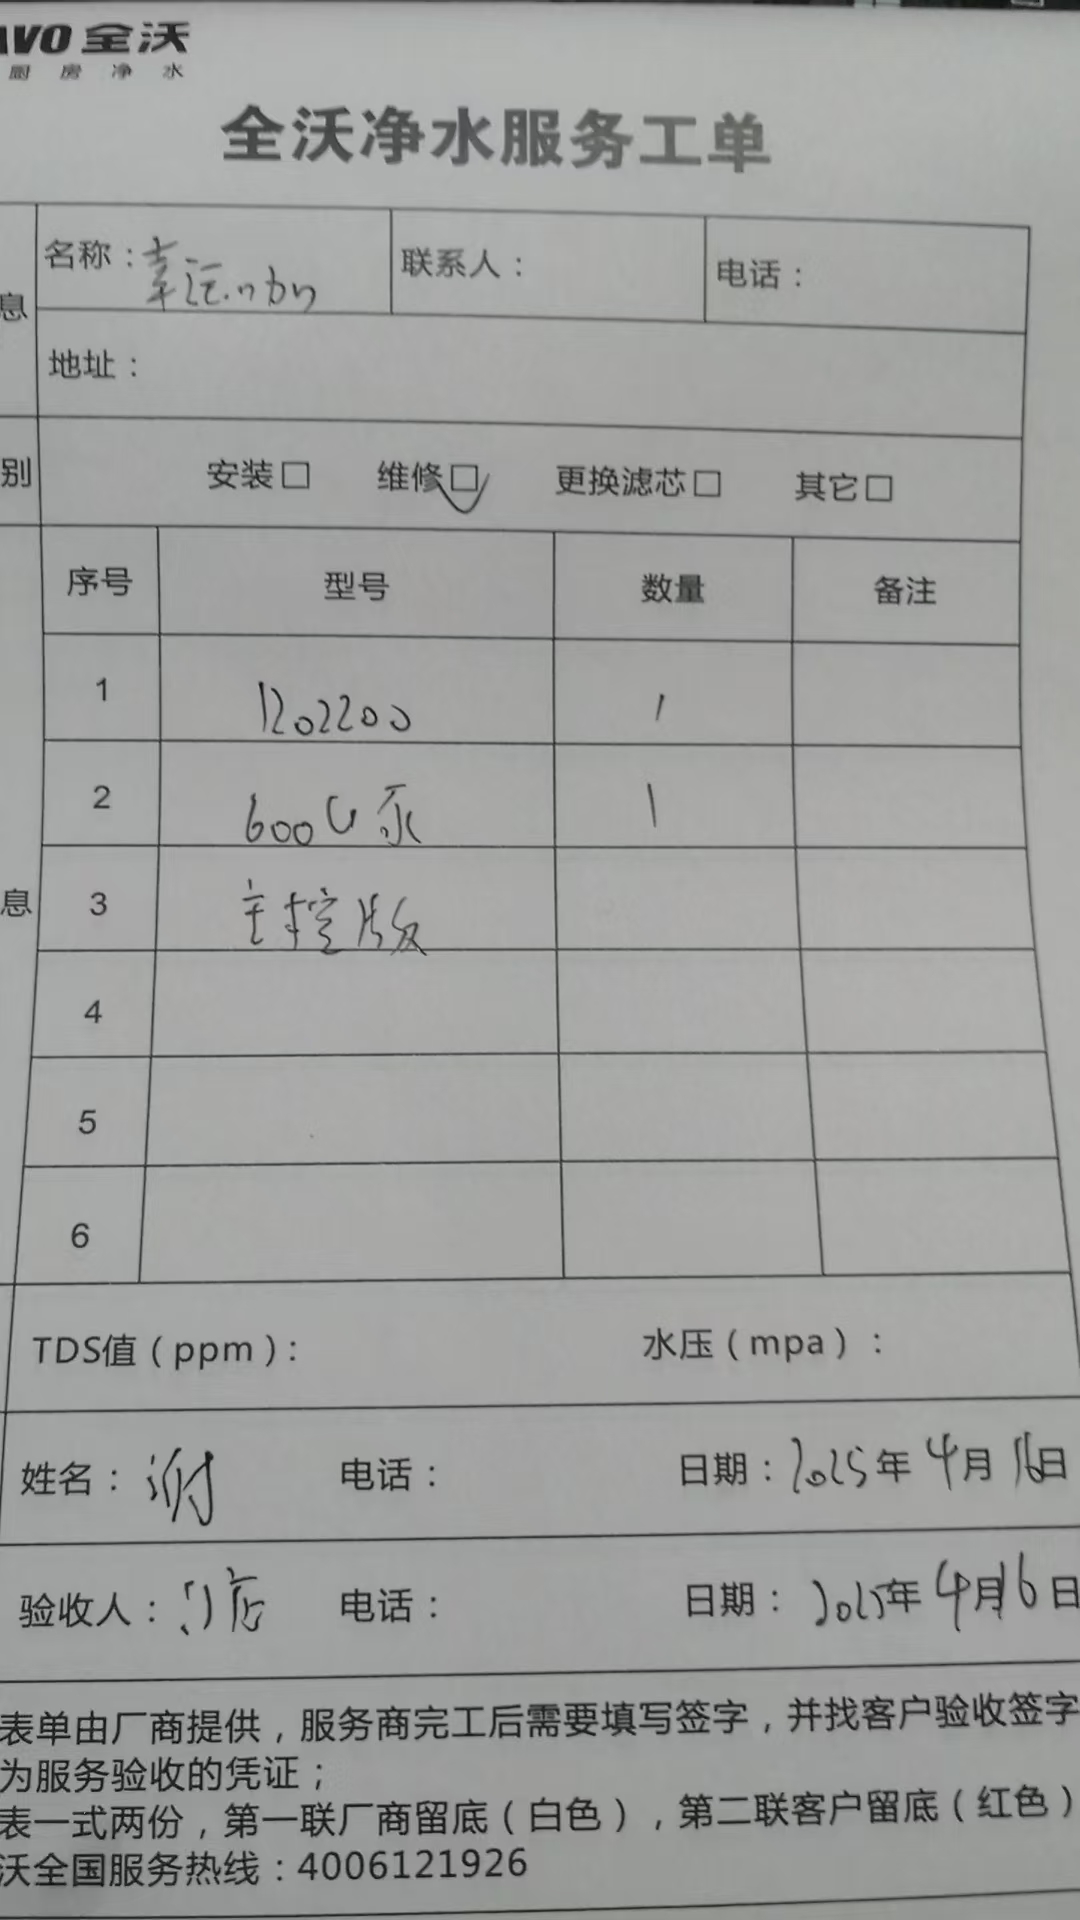 AVO 全沃
厨房净水
全沃净水服务工单
息
名称：幸运咖 联系人： 电话：
地址：
别 安装□ 维修□ 更换滤芯□ 其它□
序号 型号 数量 备注
1 1202200 1
2 600G泵 1
息 3 主控版
4
5
6
TDS值（ppm）： 水压（mpa）：
姓名： 电话： 日期：2025年4月16日
验收人：门店 电话： 日期：2025年4月16日
表单由厂商提供，服务商完工后需要填写签字，并找客户验收签字
为服务验收的凭证；
表一式两份，第一联厂商留底（白色），第二联客户留底（红色）
沃全国服务热线：4006121926